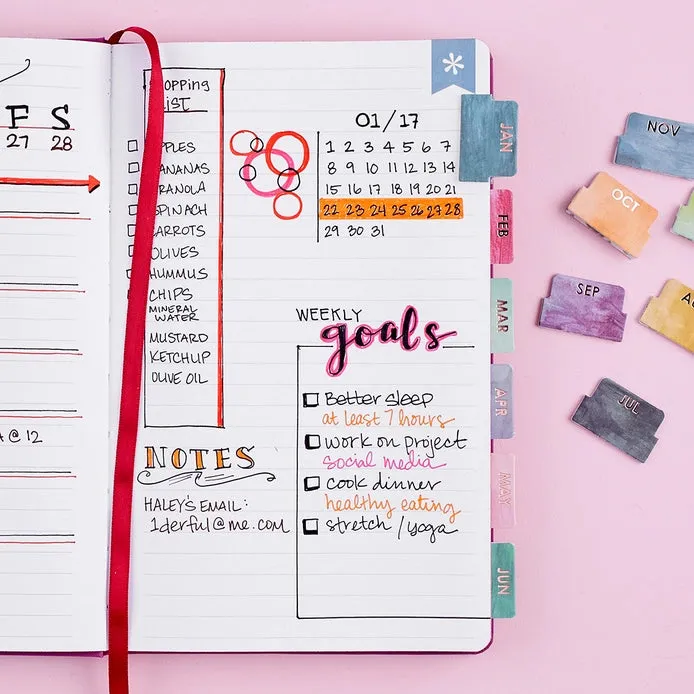 F S
27 28
@ 12
Shopping
LIST
APPLES
BANANAS
GRANOLA
SPINACH
CARROTS
OLIVES
HUMMUS
CHIPS
MINERAL
WATER
MUSTARD
KETCHUP
OLIVE OIL
NOTES
HALEY'S EMAIL:
1derful@me.com
01/17
1 2 3 4 5 6 7
8 9 10 11 12 13 14
15 16 17 18 19 20 21
22 23 24 25 26 27 28
29 30 31
WEEKLY
goals
Better sleep
at least 7 hours
work on project
social media
cook dinner
healthy eating
stretch / yoga
JAN
FEB
MAR
APR
MAY
JUN
NOV
OCT
SEP
JUL